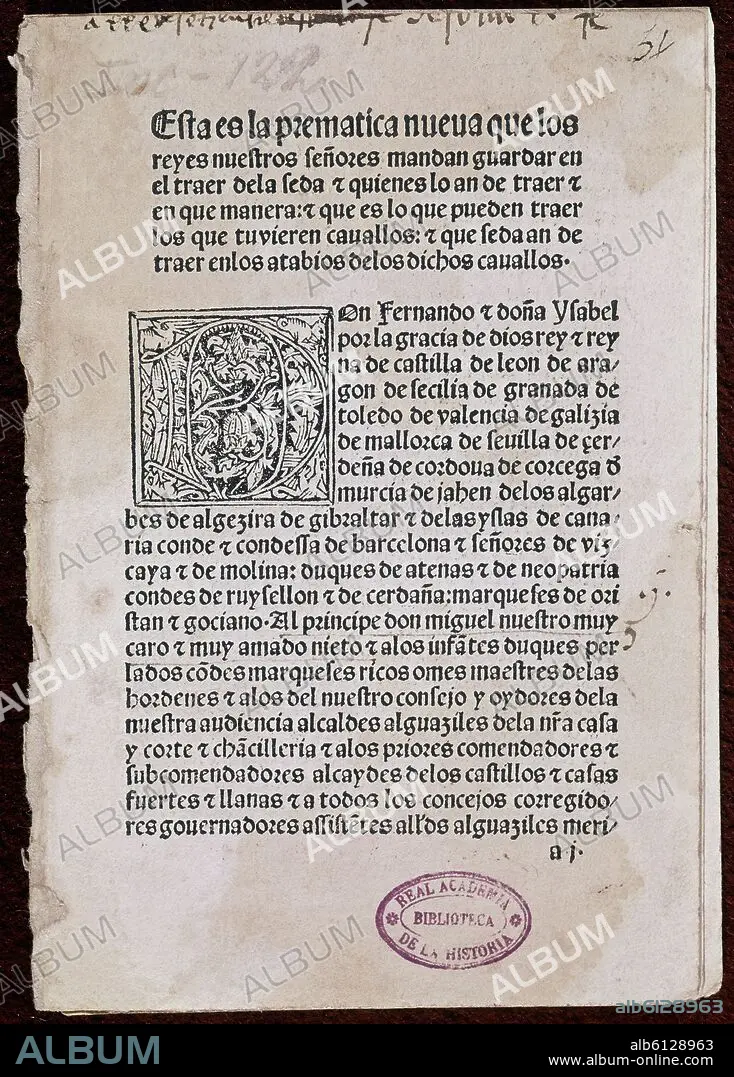 51
Esta es la prematica nueua que los
reyes nuestros señores mandan guardar en
el traer dela seda ⁊ quienes lo an de traer ⁊
en que manera: ⁊ que es lo que pueden traer
los que tuvieren cauallos: ⁊ que seda an de
traer enlos atabios delos dichos cauallos.
On Fernando ⁊ doña Ysabel
por la gracia de dios rey ⁊ rey
na de castilla de leon de ara/
gon de secilia de granada de
toledo de valencia de galizia
de mallorca de seuilla de çer/
deña de cordoua de corcega đ
murcia de jahen delos algar/
bes de algezira de gibraltar ⁊ delas yslas de cana/
ria conde ⁊ condessa de barcelona ⁊ señores de viz
caya ⁊ de molina: duques de atenas ⁊ de neopatria
condes de ruysellon ⁊ de cerdaña: marqueses de ori
stan ⁊ gociano. Al principe don miguel nuestro muy
caro ⁊ muy amado nieto ⁊ alos infãtes duques per
lados cõdes marqueses ricos omes maestres delas
hordenes ⁊ alos del nuestro consejo y oydores dela
nuestra audiencia alcaldes alguaziles dela nr̃a casa
y corte ⁊ chãcilleria ⁊ alos priores comendadores ⁊
subcomendadores alcaydes delos castillos ⁊ casas
fuertes ⁊ llanas ⁊ a todos los concejos corregido/
res gouernadores assistẽtes all'des alguaziles meri/
a j.
REAL ACADEMIA
BIBLIOTECA
DE LA HISTORIA
ALBUM
alb6128963
ALBUM
alb6128963
www.album-online.com